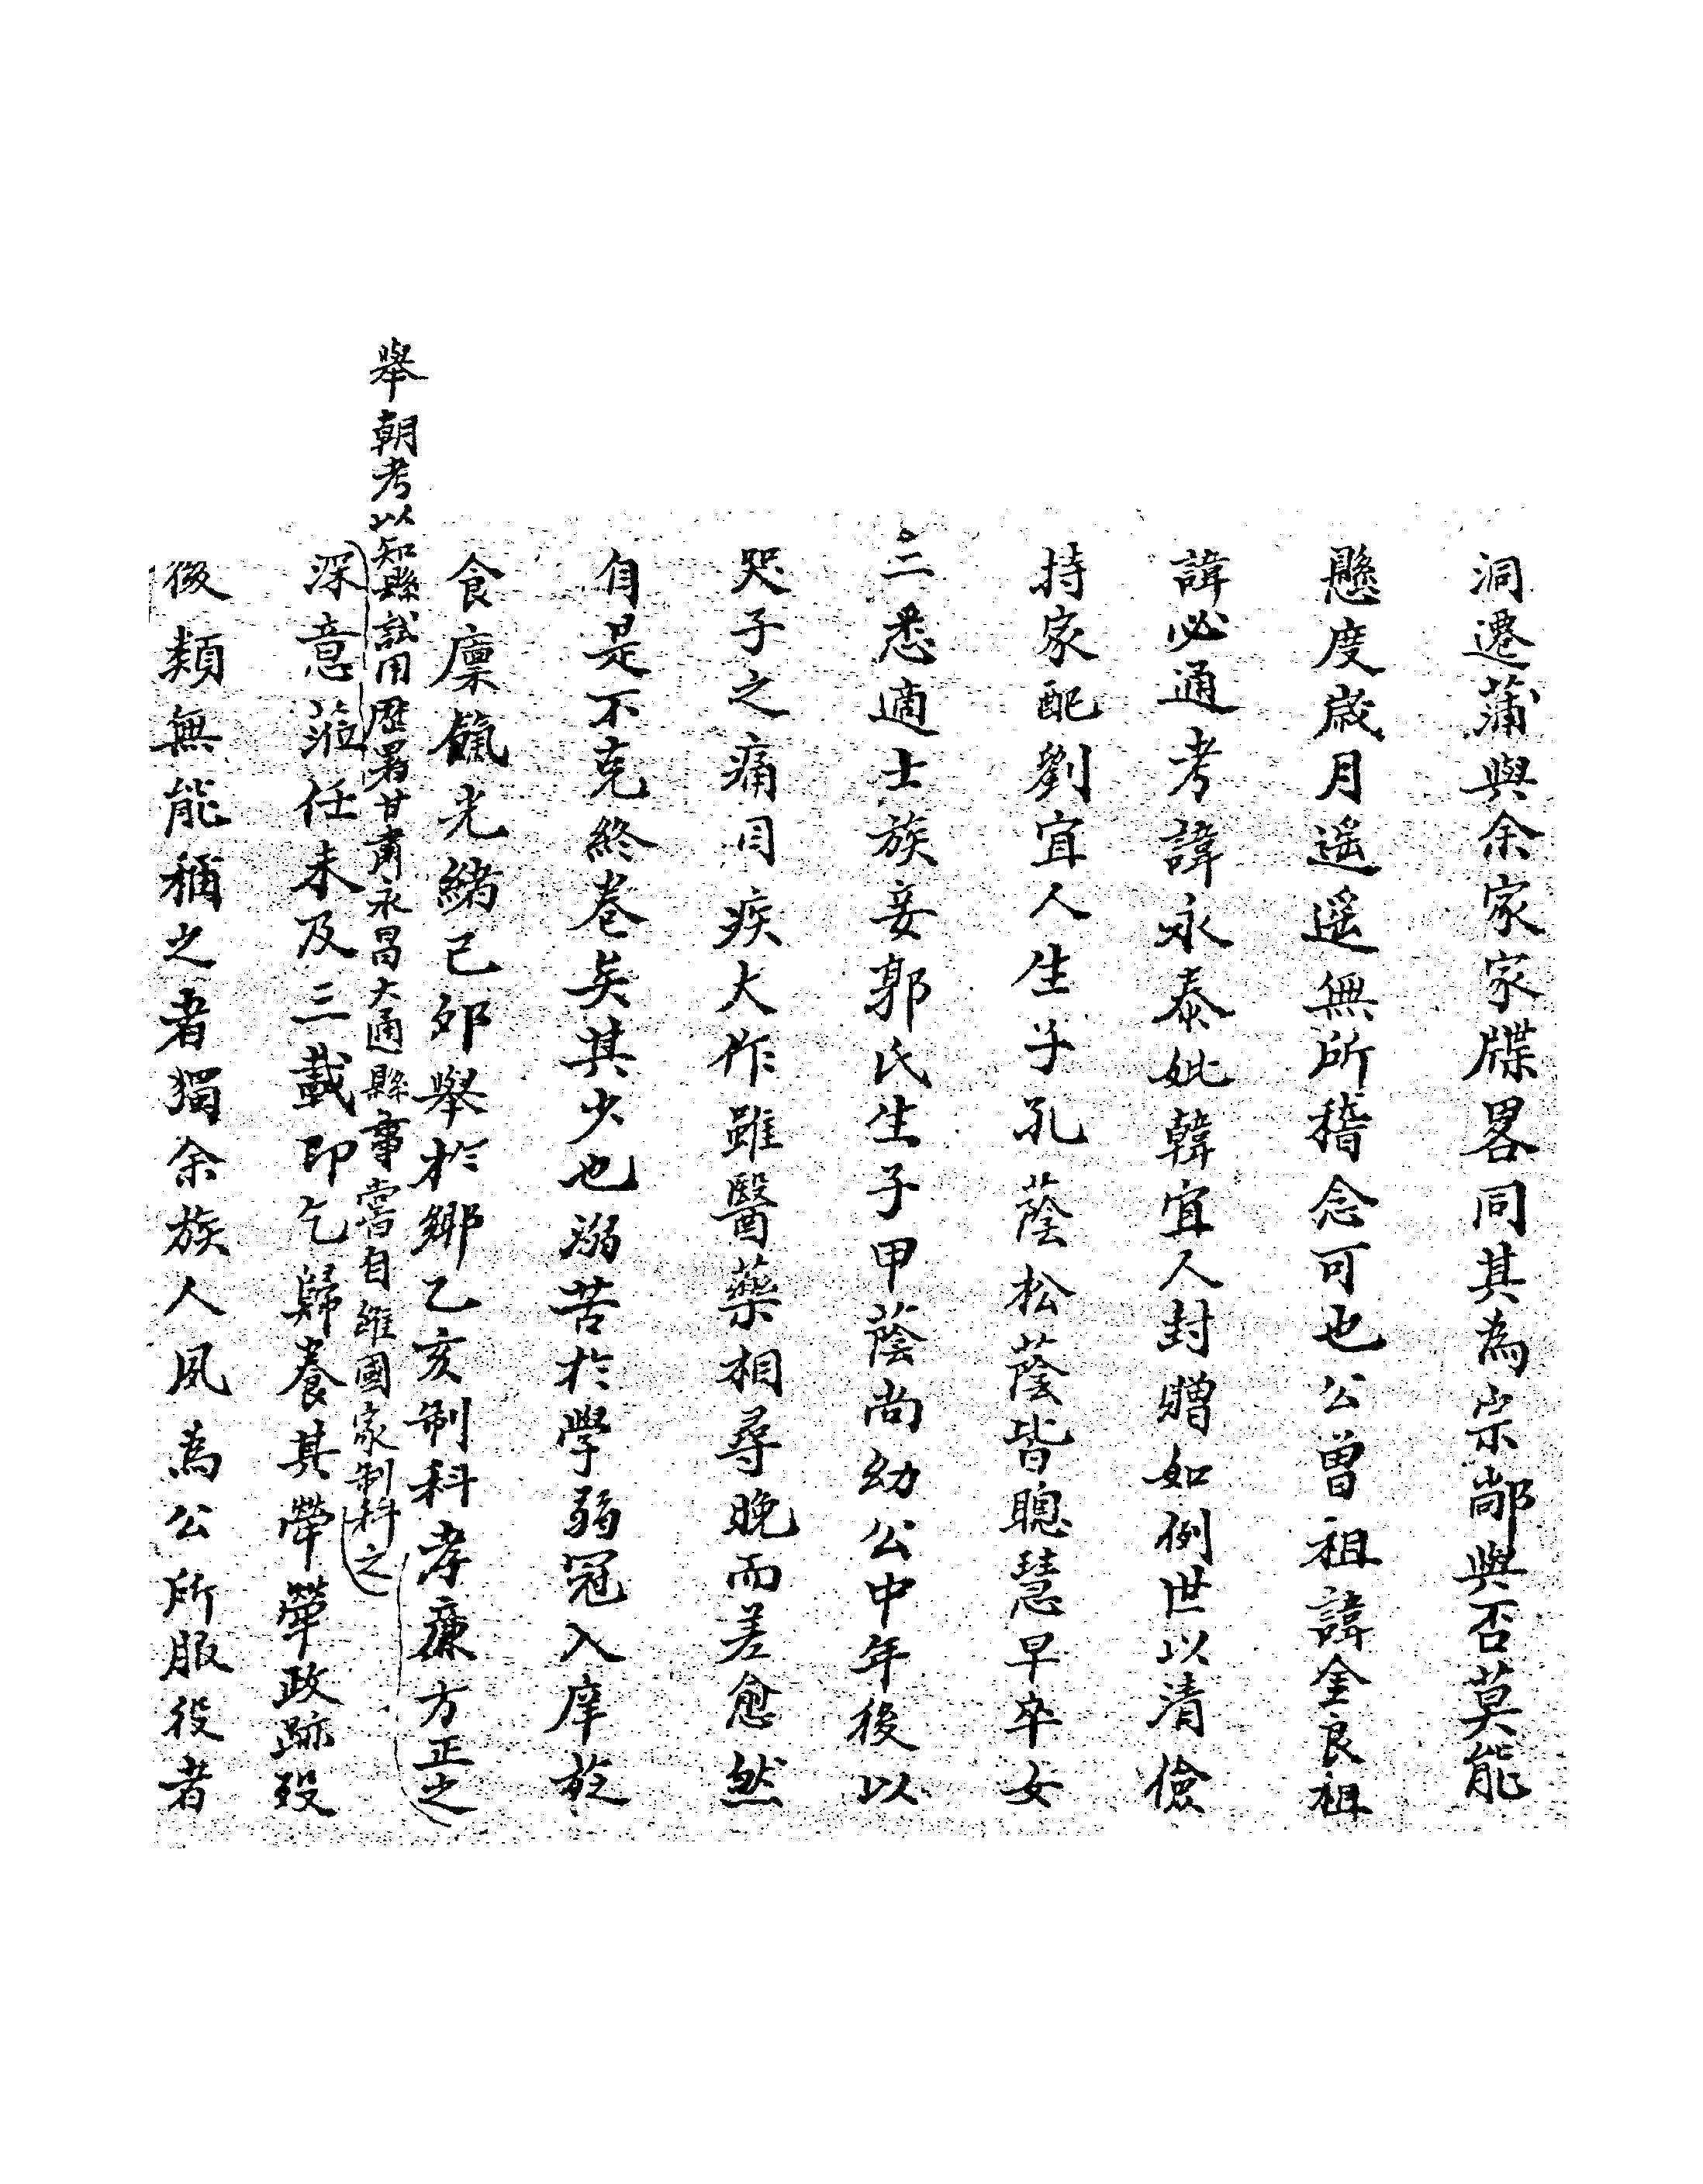 洞遷蒲與余家家牒畧同其為宗鄗與否莫能
懸度歲月遥遥無所稽念可也公曾祖諱金良祖
諱必通考諱永泰妣韓宜人封贈如例世以清儉
持家配劉宜人生子孔蔭松蔭皆聰慧早卒女
二悉適士族妾郭氏生子甲蔭尚幼公中年後以
哭子之痛目疾大作雖醫藥相尋晚而差愈然
自是不克終卷矣其少也溺苦於學弱冠入庠旋
食廩餼光緒己卯舉於鄉乙亥制科孝廉方正之
舉朝考以知縣試用歷署甘肅永昌大通縣事嘗自維國家制科之
深意蒞任未及三載即乞歸養其犖犖政跡歿
後類無能稱之者獨余族人夙為公所服役者